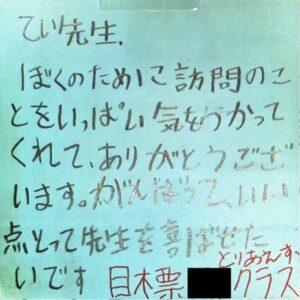 てい先生、
ぼくのために訪問のこ
とをいっぱい気をつかって
くれて、ありがとうござ
います。がんばって、いい
点とって先生を喜ばせた
いです 目標 クラス
とりおんず